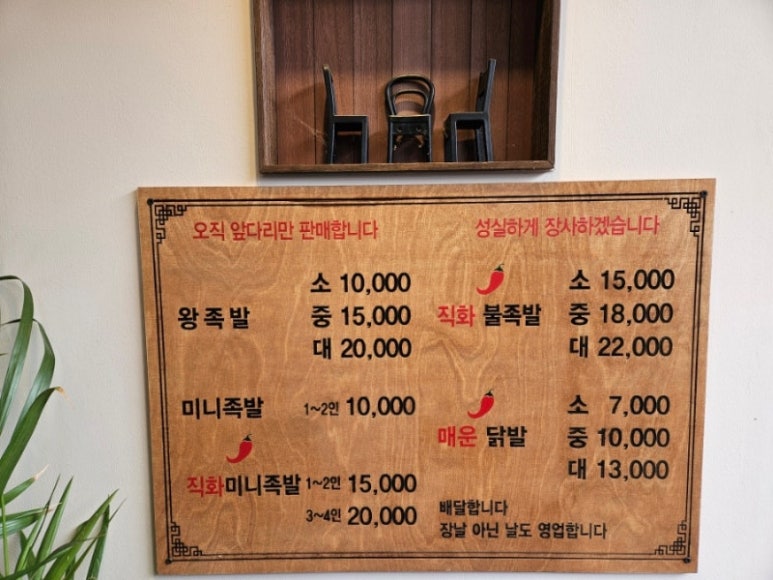 오직 앞다리만 판매합니다
성실하게 장사하겠습니다
왕족발
소 10,000
중 15,000
대 20,000
미니족발 1~2인 10,000
직화미니족발 1~2인 15,000
3~4인 20,000
직화 불족발
소 15,000
중 18,000
대 22,000
매운 닭발
소 7,000
중 10,000
대 13,000
배달합니다
장날 아닌 날도 영업합니다